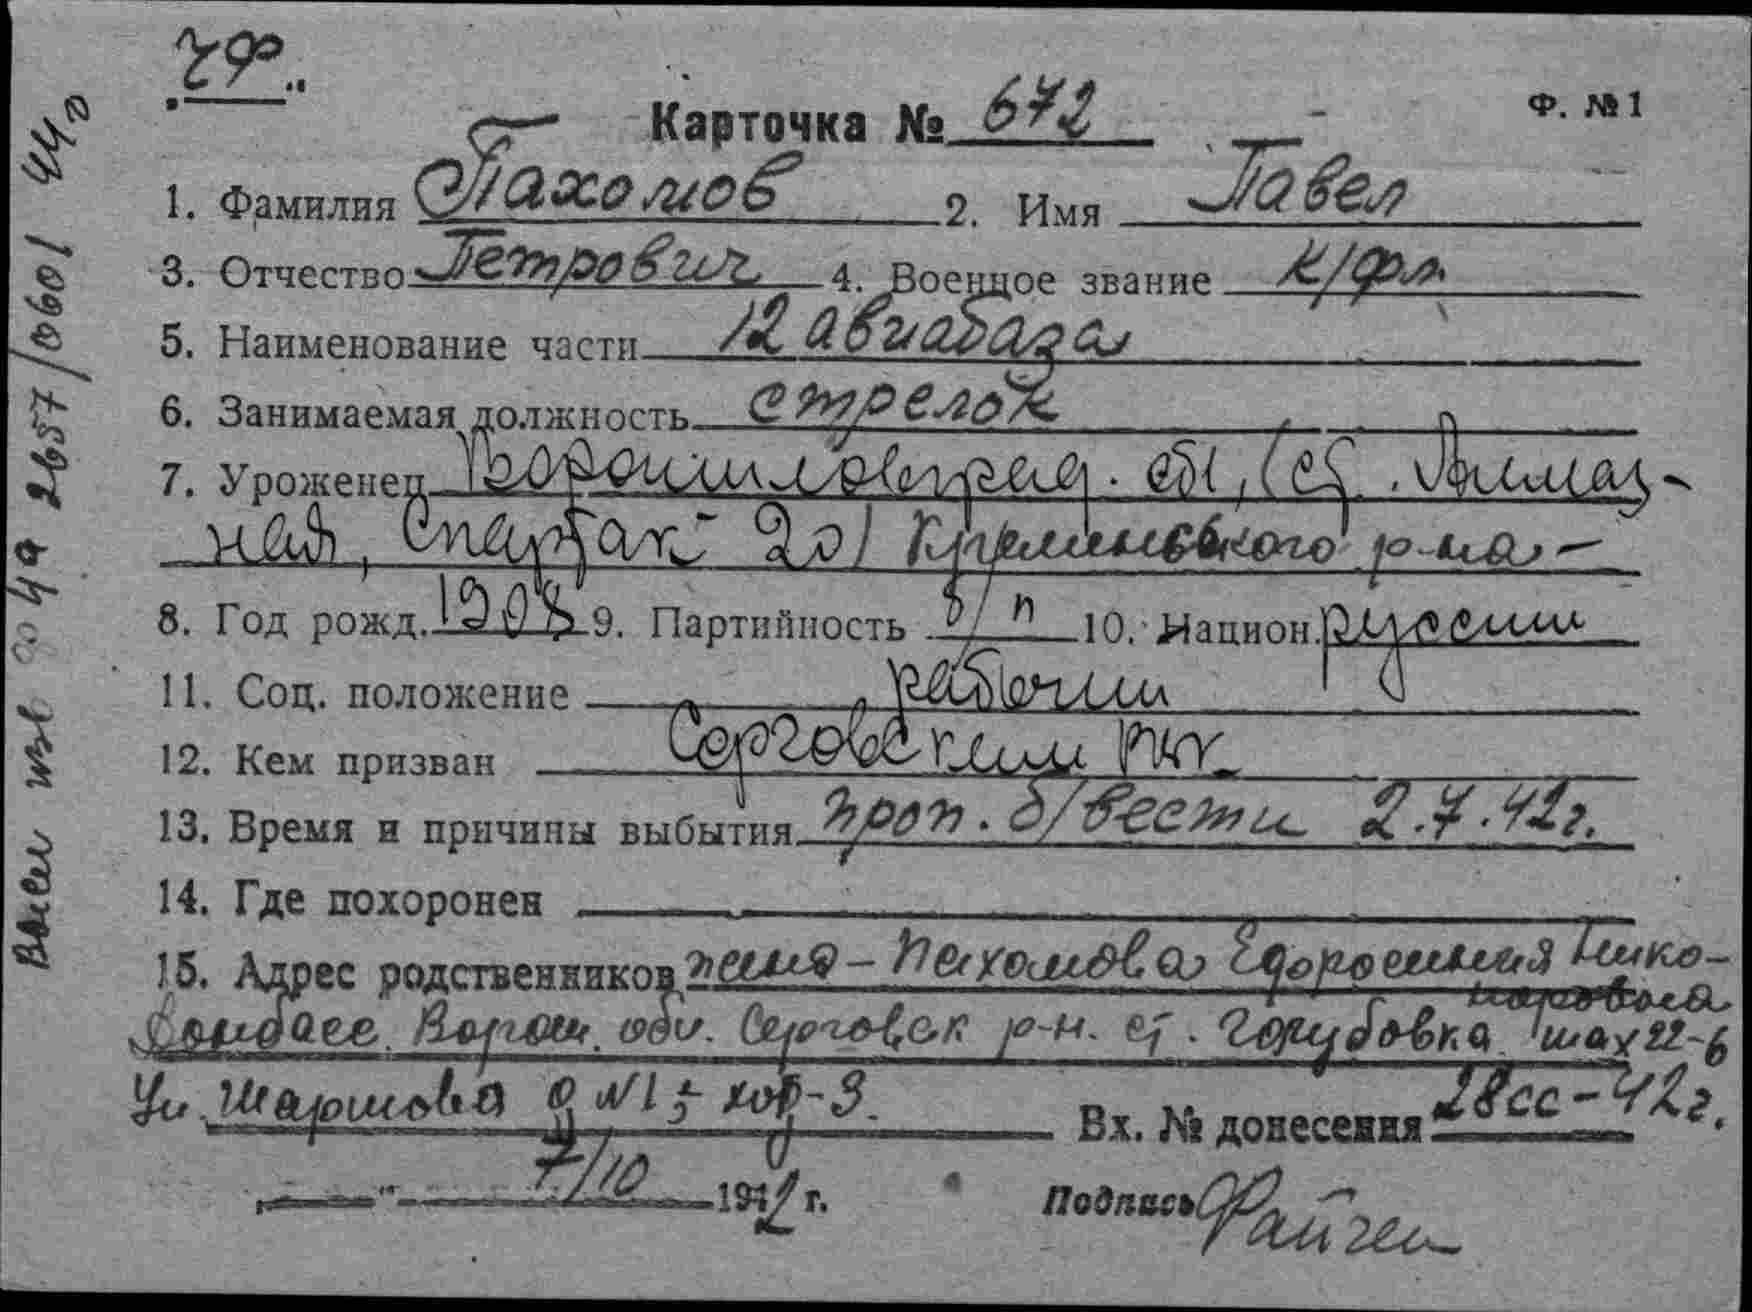 ЧФ.
Карточка № 672
Ф. №1
1. Фамилия Пахомов 2. Имя Павел
3. Отчество Петрович 4. Военное звание к/фл
5. Наименование части 12 авиабаза
6. Занимаемая должность стрелок
7. Уроженец Ворошиловград. обл, (ст. Алмаз-
ная, Спартак- р-на -
8. Год рожд. 1908 9. Партийность б/п 10. Национ. русский
11. Соц. положение рабочий
12. Кем призван Серговским РВК
13. Время и причины выбытия проп. б/вести 2.7.42г.
14. Где похоронен
15. Адрес родственников жена - Пахомова Нико-
Донбасс. Ворош. обл. Серговск р-н. ст. Голубовка шах 22-6
Ул. д №1
Вх. № донесения 28сс-42г.
"" 7/10 1942 г. Подпись
2657/0601